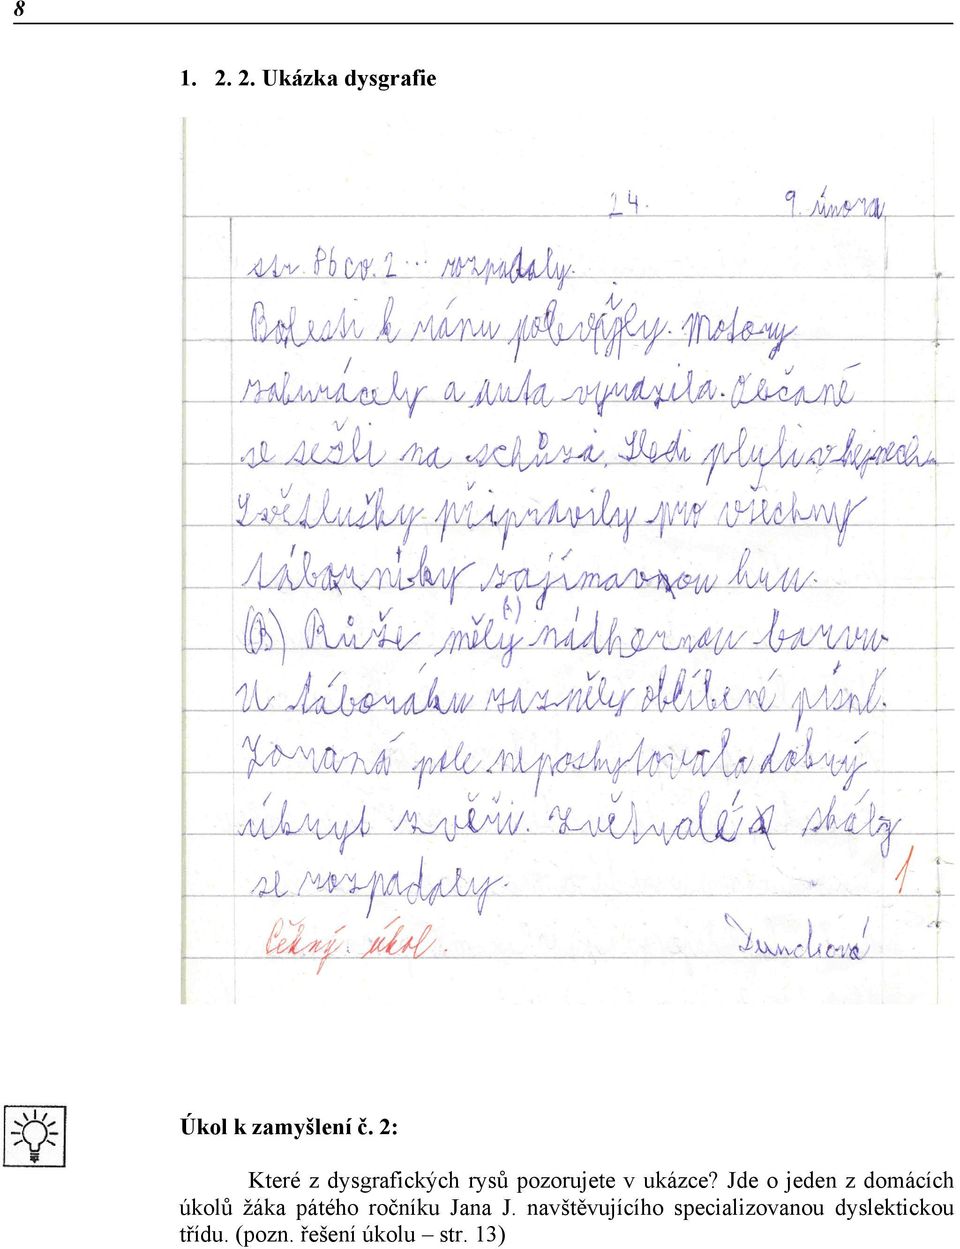 8
1. 2. 2. Ukázka dysgrafie
24. 9. února
str. 86 cv. 2 ... rozpadaly.
Bolesti k ránu polevily. Motory
zaburácely a auta vyrazila. Občané
se sešli na schůzi. Sledi pluli v hejnech.
Světlušky připravily pro všechny
táborníky zajímavou hru.
(B) Růže měly (B) nádhernou barvu
U táboráku zazněly oblíbené písně.
Zoraná pole neposkytovala dobrý
úkryt zvěři. Zvětralé skály
se rozpadaly. 1
Pěkný úkol.
Úkol k zamyšlení č. 2:
Které z dysgrafických rysů pozorujete v ukázce? Jde o jeden z domácích
úkolů žáka pátého ročníku Jana J. navštěvujícího specializovanou dyslektickou
třídu. (pozn. řešení úkolu – str. 13)